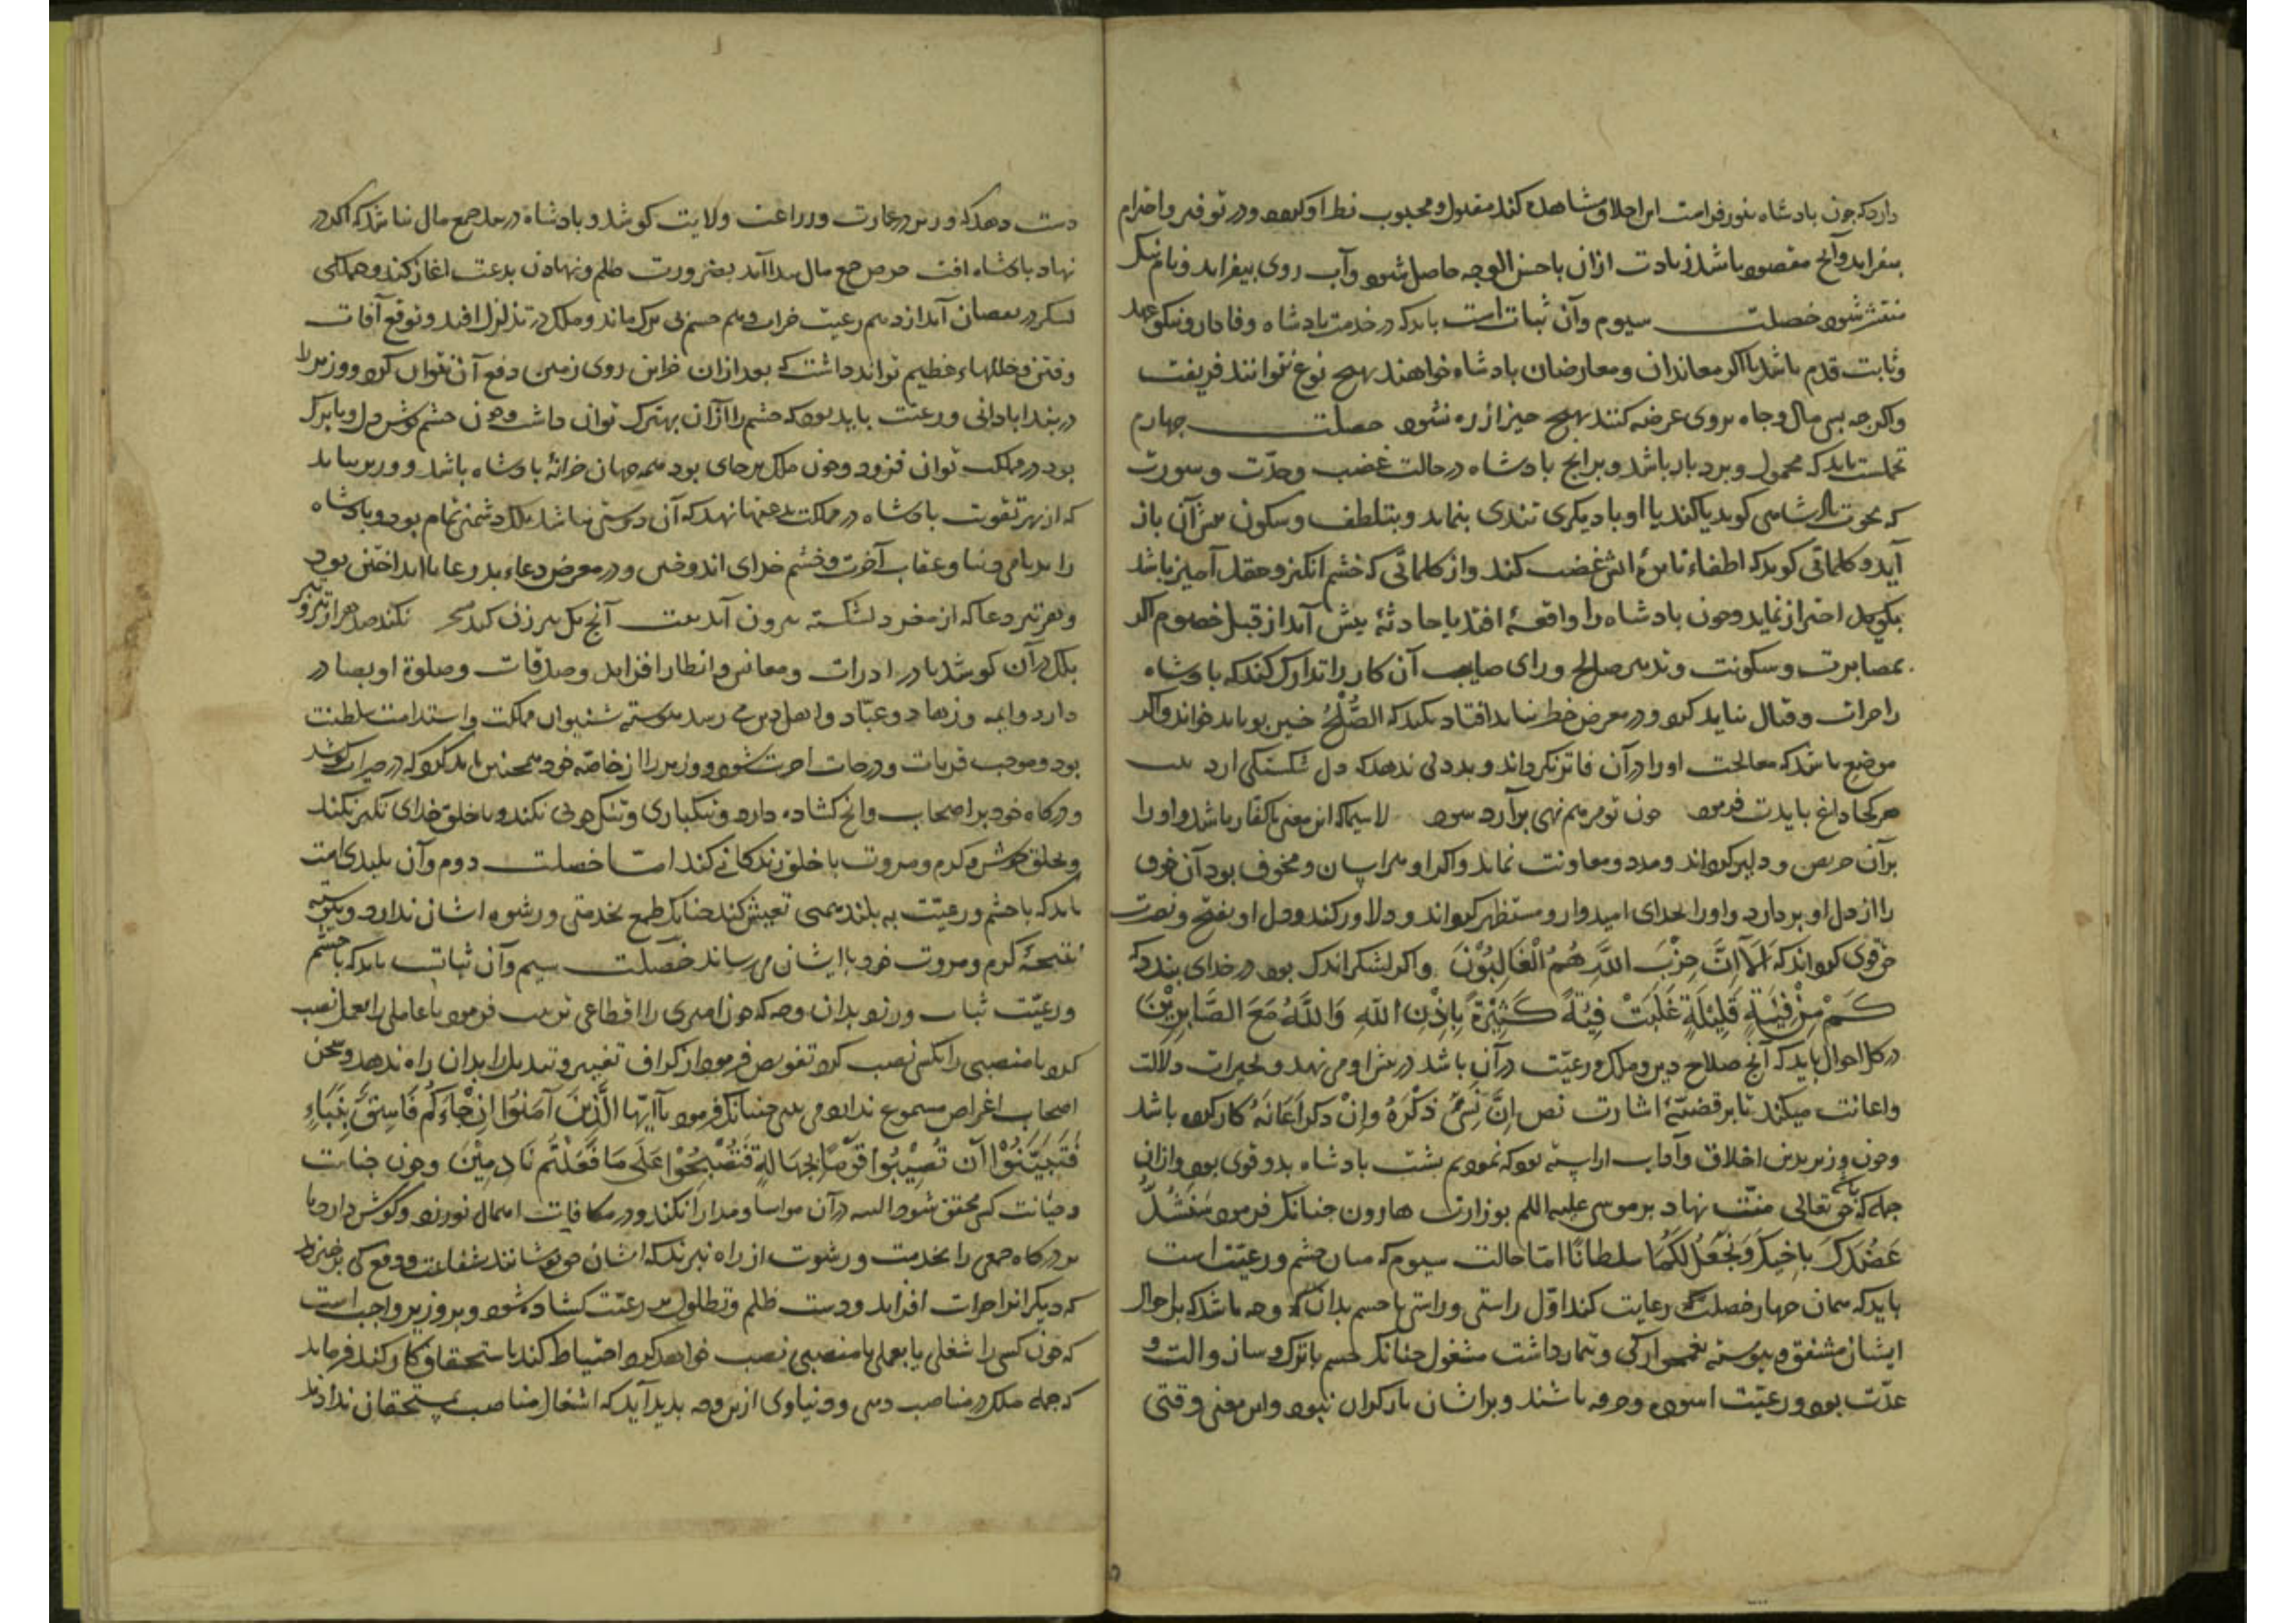 دارد که چون بادشاه بنور فراست این اخلاق مشاهده کند مقبول و محبوب نظر او کردد و در توقیر و احترام
بیفزاید و آنچ مقصود باشد زیادت ازان باحسن الوجه حاصل شود و آب روی بیفزاید و نام نیک
منتشر شود خصلت سیوم و آن ثبات است باید که در خدمت بادشاه وفادار و نیکو عهد
و ثابت قدم باشد تا اکر معاندان و معارضان بادشاه خواهند بهیچ نوع نتوانند فریفت
و اکرچه بسی مال و جاه بروی عرضه کنند بهیچ چیز از ره نشود خصلت چهارم
تحملست باید که محمول و بردبار باشد و برانچ بادشاه در حالت غضب و حدّت و سورت
که نخوت بادشاهی کوید یا کند یا او با دیکری تندی بنماید و بتلطف و سکون پیش آن باز
آید و کلماتی کوید که اطفاء نایرهٔ آتش غضب کند و از کلماتی که خشم انکیز و حقد آمیز باشد
بکلی احتراز نماید و چون بادشاه را واقعهٔ افتد یا حادثهٔ پیش آید از قبل خصوم اکر
بمصابرت و سکونت و تدبیر صالح و رای صایب آن کار را تدارک کند که بادشاه
را حراب و قتال نباید کرد و در معرض خطر نباید افتاد بکند که الصُّلْحُ خیر برو باید خواند و اکر
موضع باشد که مصالحت او را در آن فاتر نکرداند و بددلی ندهد که دل شکستکی ارد بیت
هرکجا داغ بایدت فرمود چون تو مرهم نهی برآرد سود لا سیما که این معنی با کفار باشد و او را
برآن حریص و دلیر کرداند و مدد و معاونت نماید و اکر او هراسان و مخوف بود آن خوف
را از دل او بردارد و او را بخدای امیدوار و مستظهر کرداند و دلاور کند و دل او بفتح و نصرت
حق قوی کرداند که اَلَا اِنَّ حِزْبَ اللَّهِ هُمُ الْغَالِبُوْنَ و اکر لشکر اندک بود در خدای بندد که
کَمْ مِنْ فِئَةٍ قَلِیْلَةٍ غَلَبَتْ فِئَةً کَثِیْرَةً بِاِذْنِ اللهِ وَاللَّهُ مَعَ الصَّابِرِیْنَ
در کل احوال باید که آنچ صلاح دین و ملک و رعیّت در آن باشد در پیش او می نهد و بخیرات دلالت
و اعانت میکند تا بر قضیّهٔ اشارت نص اِنَّ نَسِیَ ذَکَّرَهُ وَاِنْ ذکر اَعَانَهُ کار کرده باشد
و چون وزیر بدین اخلاق و آداب اراسته بود که نمودیم پشت بادشاه بدو قوی بود و ازان
جمله که حق تعالی منّت نهاد بر موسی علیه السلم بوزارت هارون چنانک فرمود سَنَشُدُّ
عَضُدَکَ بِاَخِیکَ وَنَجْعَلُ لَکُمَا سلطانًا امّا حالت سیوم که میان حشم و رعیّت است
باید که میان چهار خصلت رعایت کند اوّل راستی و راستی با حشم بدان وجه باشد که بر احوال
ایشان مشفق و پیوسته بغمخوارکی و تیمارداشت مشغول چنانک حشم با ترک و ساز و الت و
عدّت بود و رعیّت اسوده و مرفه باشند و برایشان بار کران نبود و این معنی وقتی
دست دهد که وزیر در عمارت و زراعت ولایت کوشد و بادشاه در بند جمع مال نباشد که اکر در
نهاد بادشاه افت حرص جمع مال پیدا آید بضرورت ظلم و نهادن بدعت اغاز کند و همکی
لشکر در نقصان آید از دیهم رعیت خراب و هم حشم بی برک ماند و ملک در تزلزل افتد و توقع آفات
و فتن و خللهاء عظیم تواند داشت که بعد ازان خزاین روی زمین دفع آن نتوان کرد و وزیر را
در بند ابادانی و رعیّت باید بود که حشم را ازان بهترک توان داشت و چون حشم خوش دل و با برک
بود در مملکت توان فزود و چون ملک برجای بود همه جهان خزانهٔ بادشاه باشد و وزیر نباید
که از بهر تقویت بادشاه در مملکت بدعتها نهد که آن دوستی نباشد بلک دشمنی تمام بود و بادشاه
را بدنامی دنیا و عقاب آخرت و خشم خدای اندوختن و در معرض دعاء بد رعایا انداختن بود
و هر تیر دعا که از صفدر دلشکسته بیرون آید بیت آنچ یک پیر زن کند بسحر نکند صد هزار تیر و تبر
بلک در آن کوشد تا در ادرات و معایش و انظار افزاید و صدقات و صلوة او بصادر
دارد و ایمه و زهاد و عبّاد و اهل دین می رسد پیوسته شنیوان مملکت و استدامت سلطنت
بود و موجب قربات و درجات اخرت شود و وزیر را از خاصهٔ خود همچنین باید کرد که در خیرات کوشد
و درکاه خود بر اصحاب حوائج کشاده دارد و سبکباری و تنکخویی نکند و با خلق خدای تکبر نکند
و بخلق خوش و کرم و مروت با خلق زندکانی کند امّا خصلت دوم و آن بلندی است
باید که با حشم و رعیّت به بلند همتی تعیش کند چنانک طمع بخدمتی و رشوهٔ ایشان ندارد و پیوسته
نتیجهٔ کرم و مروت خود با ایشان می رساند خصلت سیم و آن ثباتست باید که با حشم
و رعیّت ثبات ورزد بدان وجه که چون امیری را اقطاعی تربیت فرمود یا عاملی را بعمل نصب
کرد یا منصبی را بکسی نصب کرد تفویض فرمود از کزاف تغییر و تبدیل را بدان راه ندهد و سخن
اصحاب اغراض مسموع ندارد بی بینتی چنانک فرمود یا اَیُّهَا الَّذِینَ آمَنُوا اِنْ جَاءَکُمْ فَاسِقٌ بِنَبَاءٍ
فَتَبَیَّنُوْا اَنْ تُصِیْبُوا قَوْمًا بِجَهَالَةٍ فَتُصْبِحُوْا عَلَی مَا فَعَلْتُمْ نَادِمِیْنَ و چون جنایت
و خیانت کسی محقق شود البته در آن مواسا و مدارا نکند و در مکافات اهمال نورزد و کوش دارد تا
بر درکاه جمعی را بخدمت و رشوت از راه نبرند که ایشان حق بپوشانند شفاعت و دفع کی برخیزند
که دیکرانرا جرات افزاید و دست ظلم و تطاول بر رعیّت کشاده شود و بر وزیر واجب است
که چون کسی را شغلی یا بعملی یا منصبی نصب خواهد کرد احتیاط کند باستحقاق کار کند فرماید
که جمله ملک در مناصب دینی و دنیاوی ازین وجه بدید آید که اشغال مناصب بمستحقان ندادند